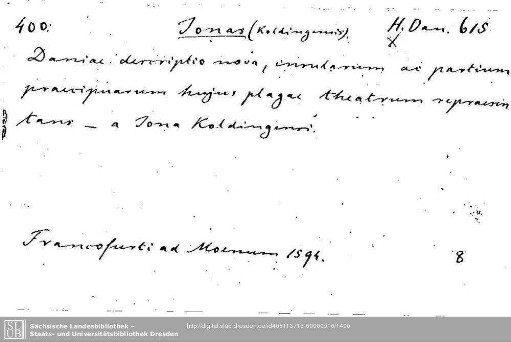 400. Jonas (Koldingensis). H. Dan. 615
X
Daniae descriptio nova, insularum ac partium
praecipuarum hujus plagae theatrum repraesen
tans — a Jona Koldingensi.
Francofurti ad Moenum 1594. 8
SLUB Sächsische Landesbibliothek –
Staats- und Universitätsbibliothek Dresden